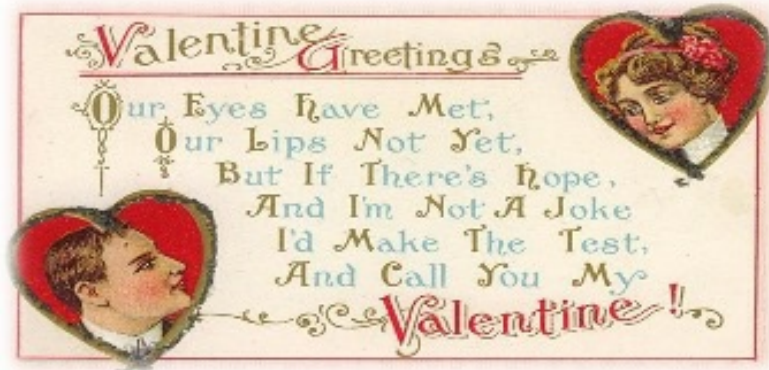 Valentine Greetings
Our Eyes Have Met,
Our Lips Not Yet,
But If There's Hope,
And I'm Not A Joke
I'd Make The Test,
And Call You My
Valentine!